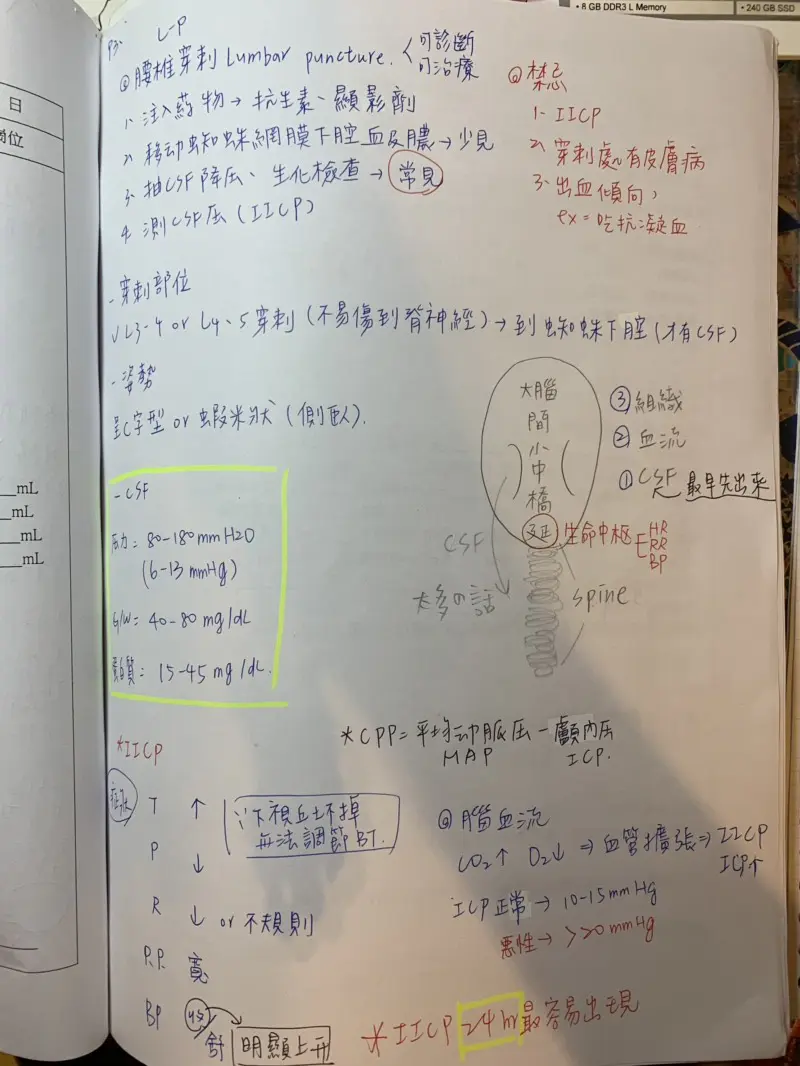 • 8 GB DDR3 L Memory
• 240 GB SSD
日
位
mL
mL
mL
mL
P3.
L-P
@腰椎穿刺 Lumbar puncture. <可診斷
可治療
1. 注入药物→抗生素、顯影劑
2. 移动蜘蛛網膜下腔血及膿→少見
3. 抽CSF降压、生化檢查→常見
4. 測CSF压(IICP)
@禁忌
1. IICP
2. 穿刺處有皮膚病
3. 出血傾向,
ex=吃抗凝血
-穿刺部位
√L3-4 or L4、5穿刺(不易傷到脊神經)→到蜘蛛下腔(才有CSF)
-姿勢
呈C字型 or 蝦米狀(側臥).
大腦
間
小
中
橋
延
生命中枢
HR
RR
BP
③組織
②血流
①CSF 最早先出來
CSF
太多の話
spine
-CSF
压力=80-180mmH2O
(6-13mmHg)
G/W=40-80mg/dL
蛋白質=15-45mg/dL.
*IICP
*CPP=平均动脈压-顱內压
MAP
ICP.
症狀
T ↑
∵下視丘坏掉
無法調節BT.
P ↓
R ↓ or 不規則
P.P. 寬
BP 收
舒
明顯上升
@腦血流
CO2↑ O2↓⇒血管擴張⇒IICP
ICP↑
ICP正常→10-15mmHg
惡性→>20mmHg
*IICP 24hr最容易出現